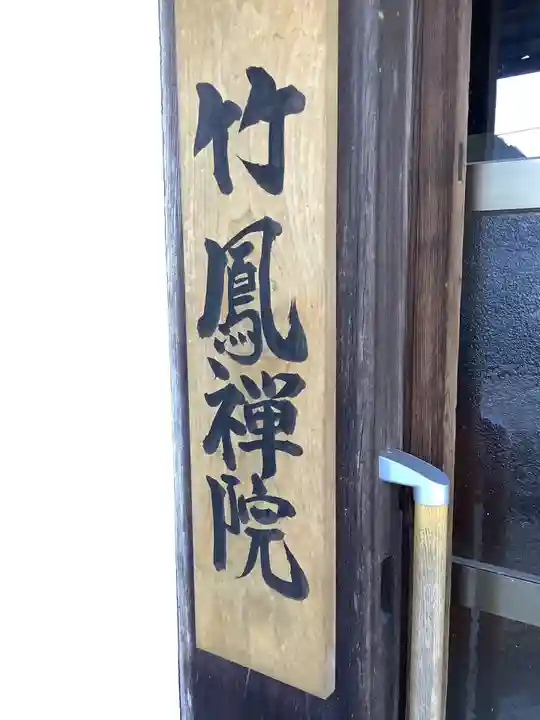 竹鳳禅院